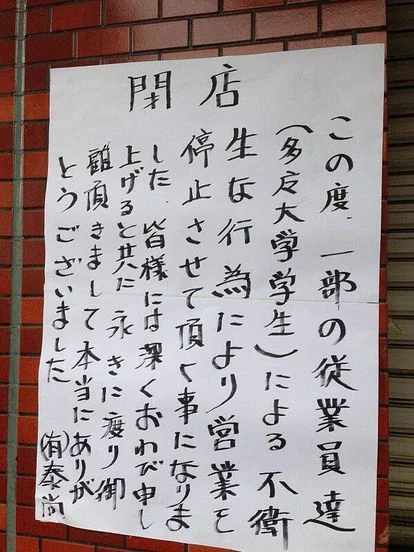 閉店
この度、一部の従業員達
(多摩大学学生)による不衛
生な行為により営業を
停止させて頂く事になりま
した 皆様には深くおわび申し
上げると共に永きに渡り御
顧頂きまして本当にありが
とうございました
(有)泰尚